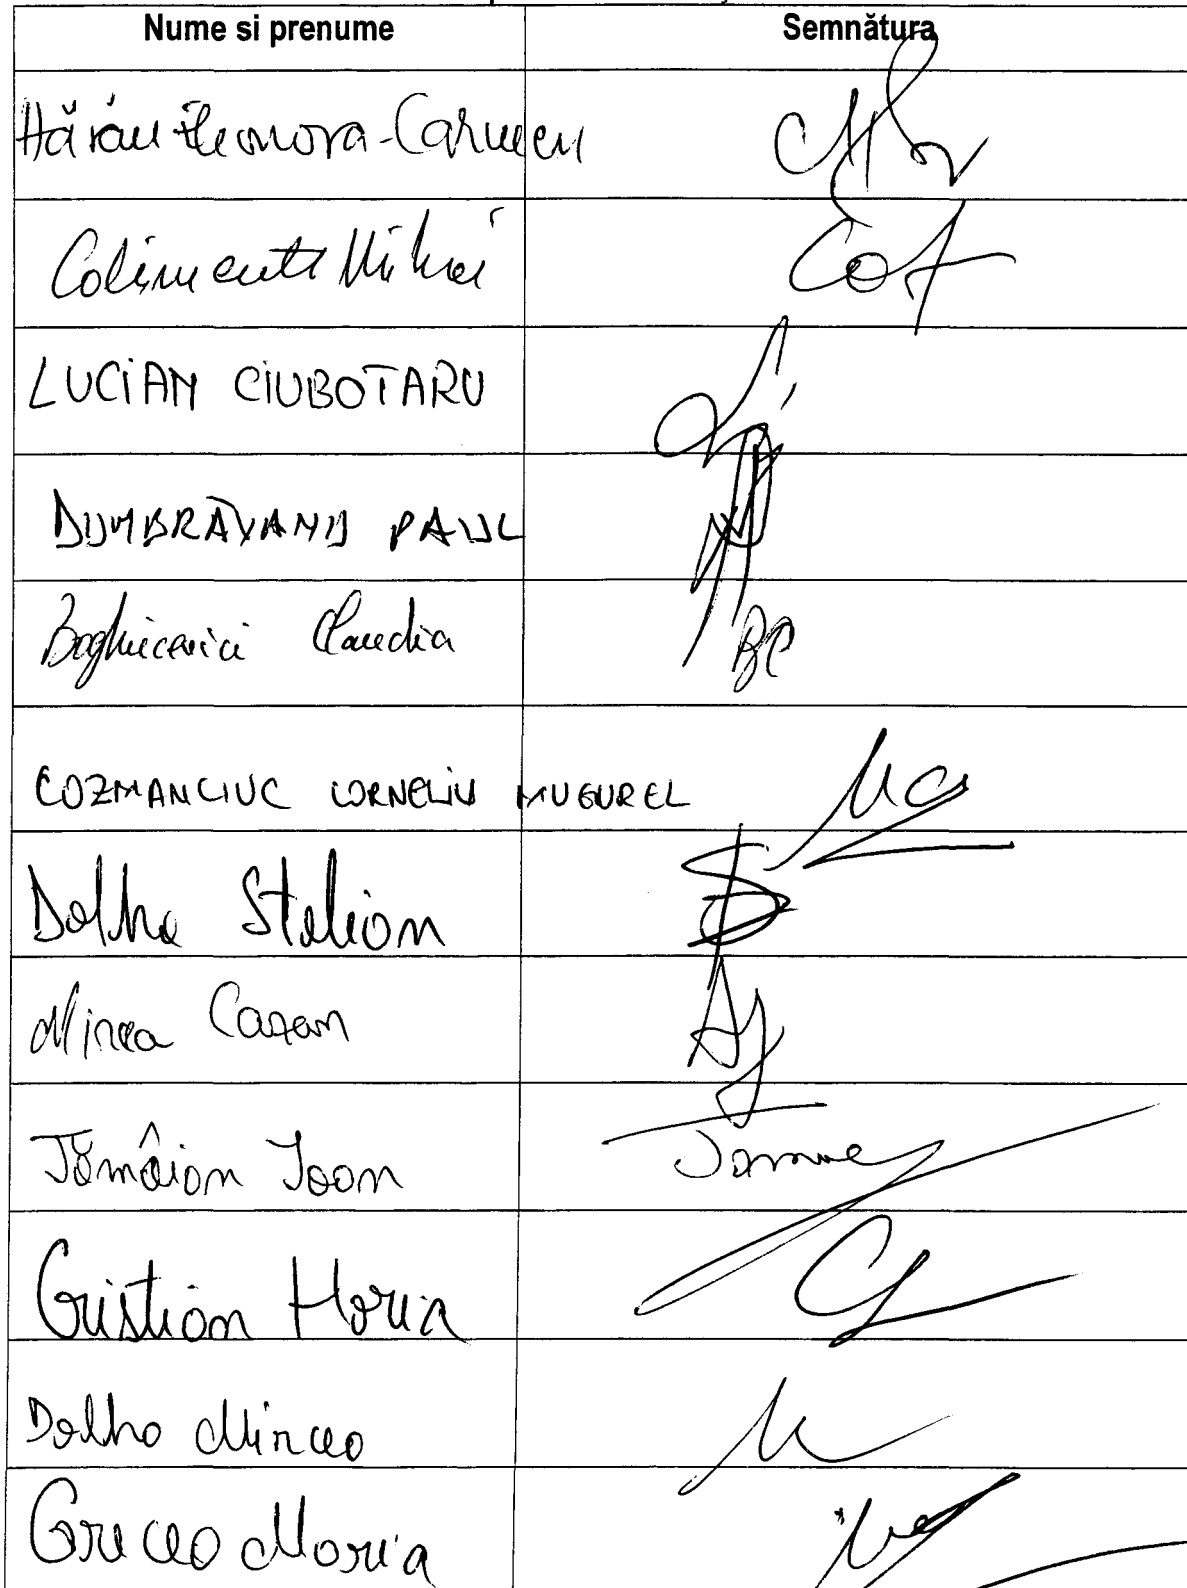 Nume si prenume Semnătura
Hărău Eleonora-Carmen
Colimente Mihai Cot
LUCIAN CIUBOTARU
DUMBRĂVANU PAUL
Boghicevici Claudia BC
COZMANCIUC CORNELIU MUGUREL
Dolha Stelian
Mircea Cazan
Tămâian Ioan
Cristian Horia
Dolha Mircea
Grecea Maria